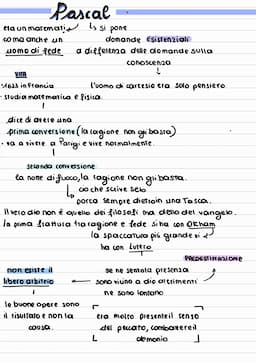 Pascal
era un matematico si pone
coma anche un domande Esistenziali
uomo di fede a differenza delle domande sulla
conoscenza
VITA
francia l'uomo di cartesio era solo pensiero
- studia matematica e fisica.
dice di avere una
prima conversione (la ragione non gli basta)
va a vivere a Parigi e vive normalmente.
seconda conversione
la notte di fuoco, la ragione non gli basta.
cio che scrive se lo
porta sempre dietro in una Tasca.
Il vero dio non è quello dei filosofi ma dello del vangelo.
la prima frattura tra ragione e fede si ha con Okham
la spaccatura più grande si
ha con Lutero
PREDESTINAZIONE
non esiste il se ne sentola presenza
libero arbitrio sono vicino a dio altrimenti
ne sono lontano
le buone opere sono
il risultato e non la era molto presente il senso
causa. del peccato, combattere il
demonio